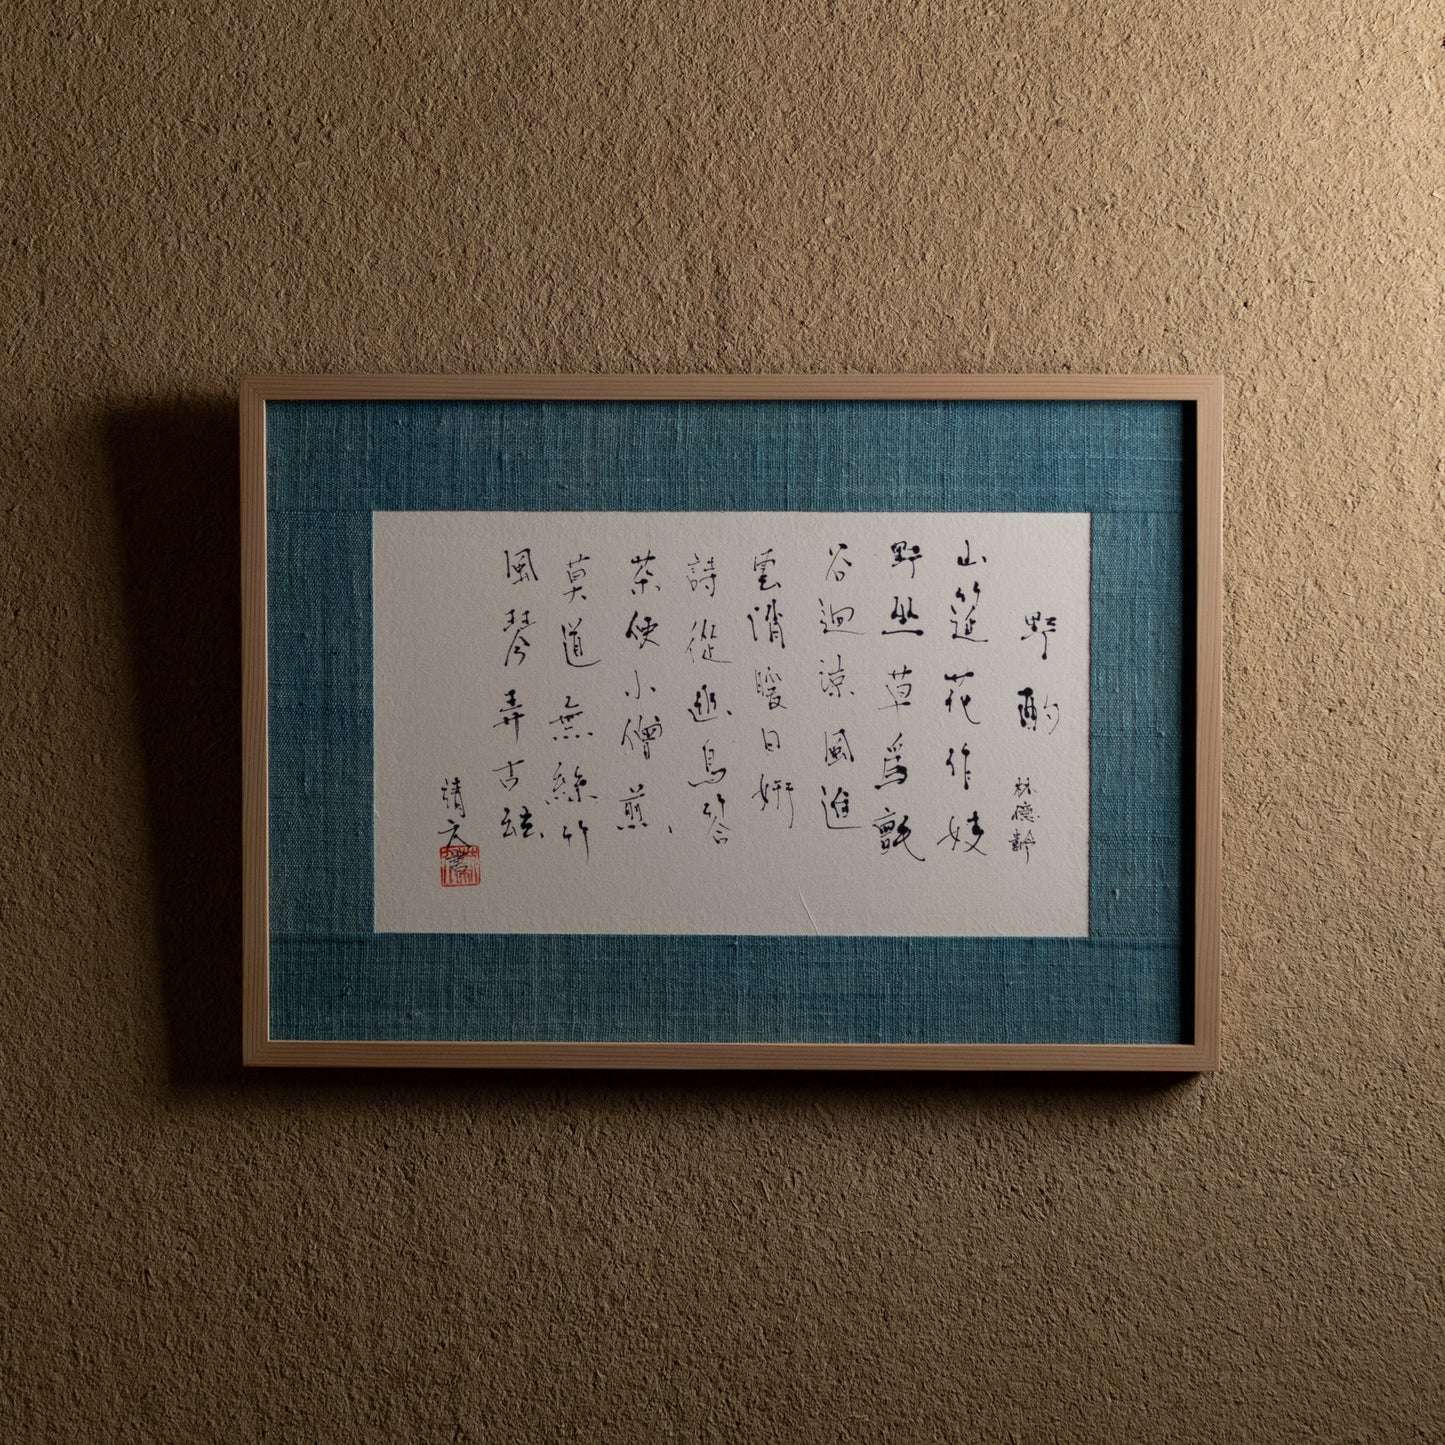 野酌
林億齡
山筵花作妓
野坐草爲氈
谷迥涼風進
雲消暖日妍
詩從幽鳥答
茶使小僧煎
莫道無絲竹
風琴弄古絃
靖文